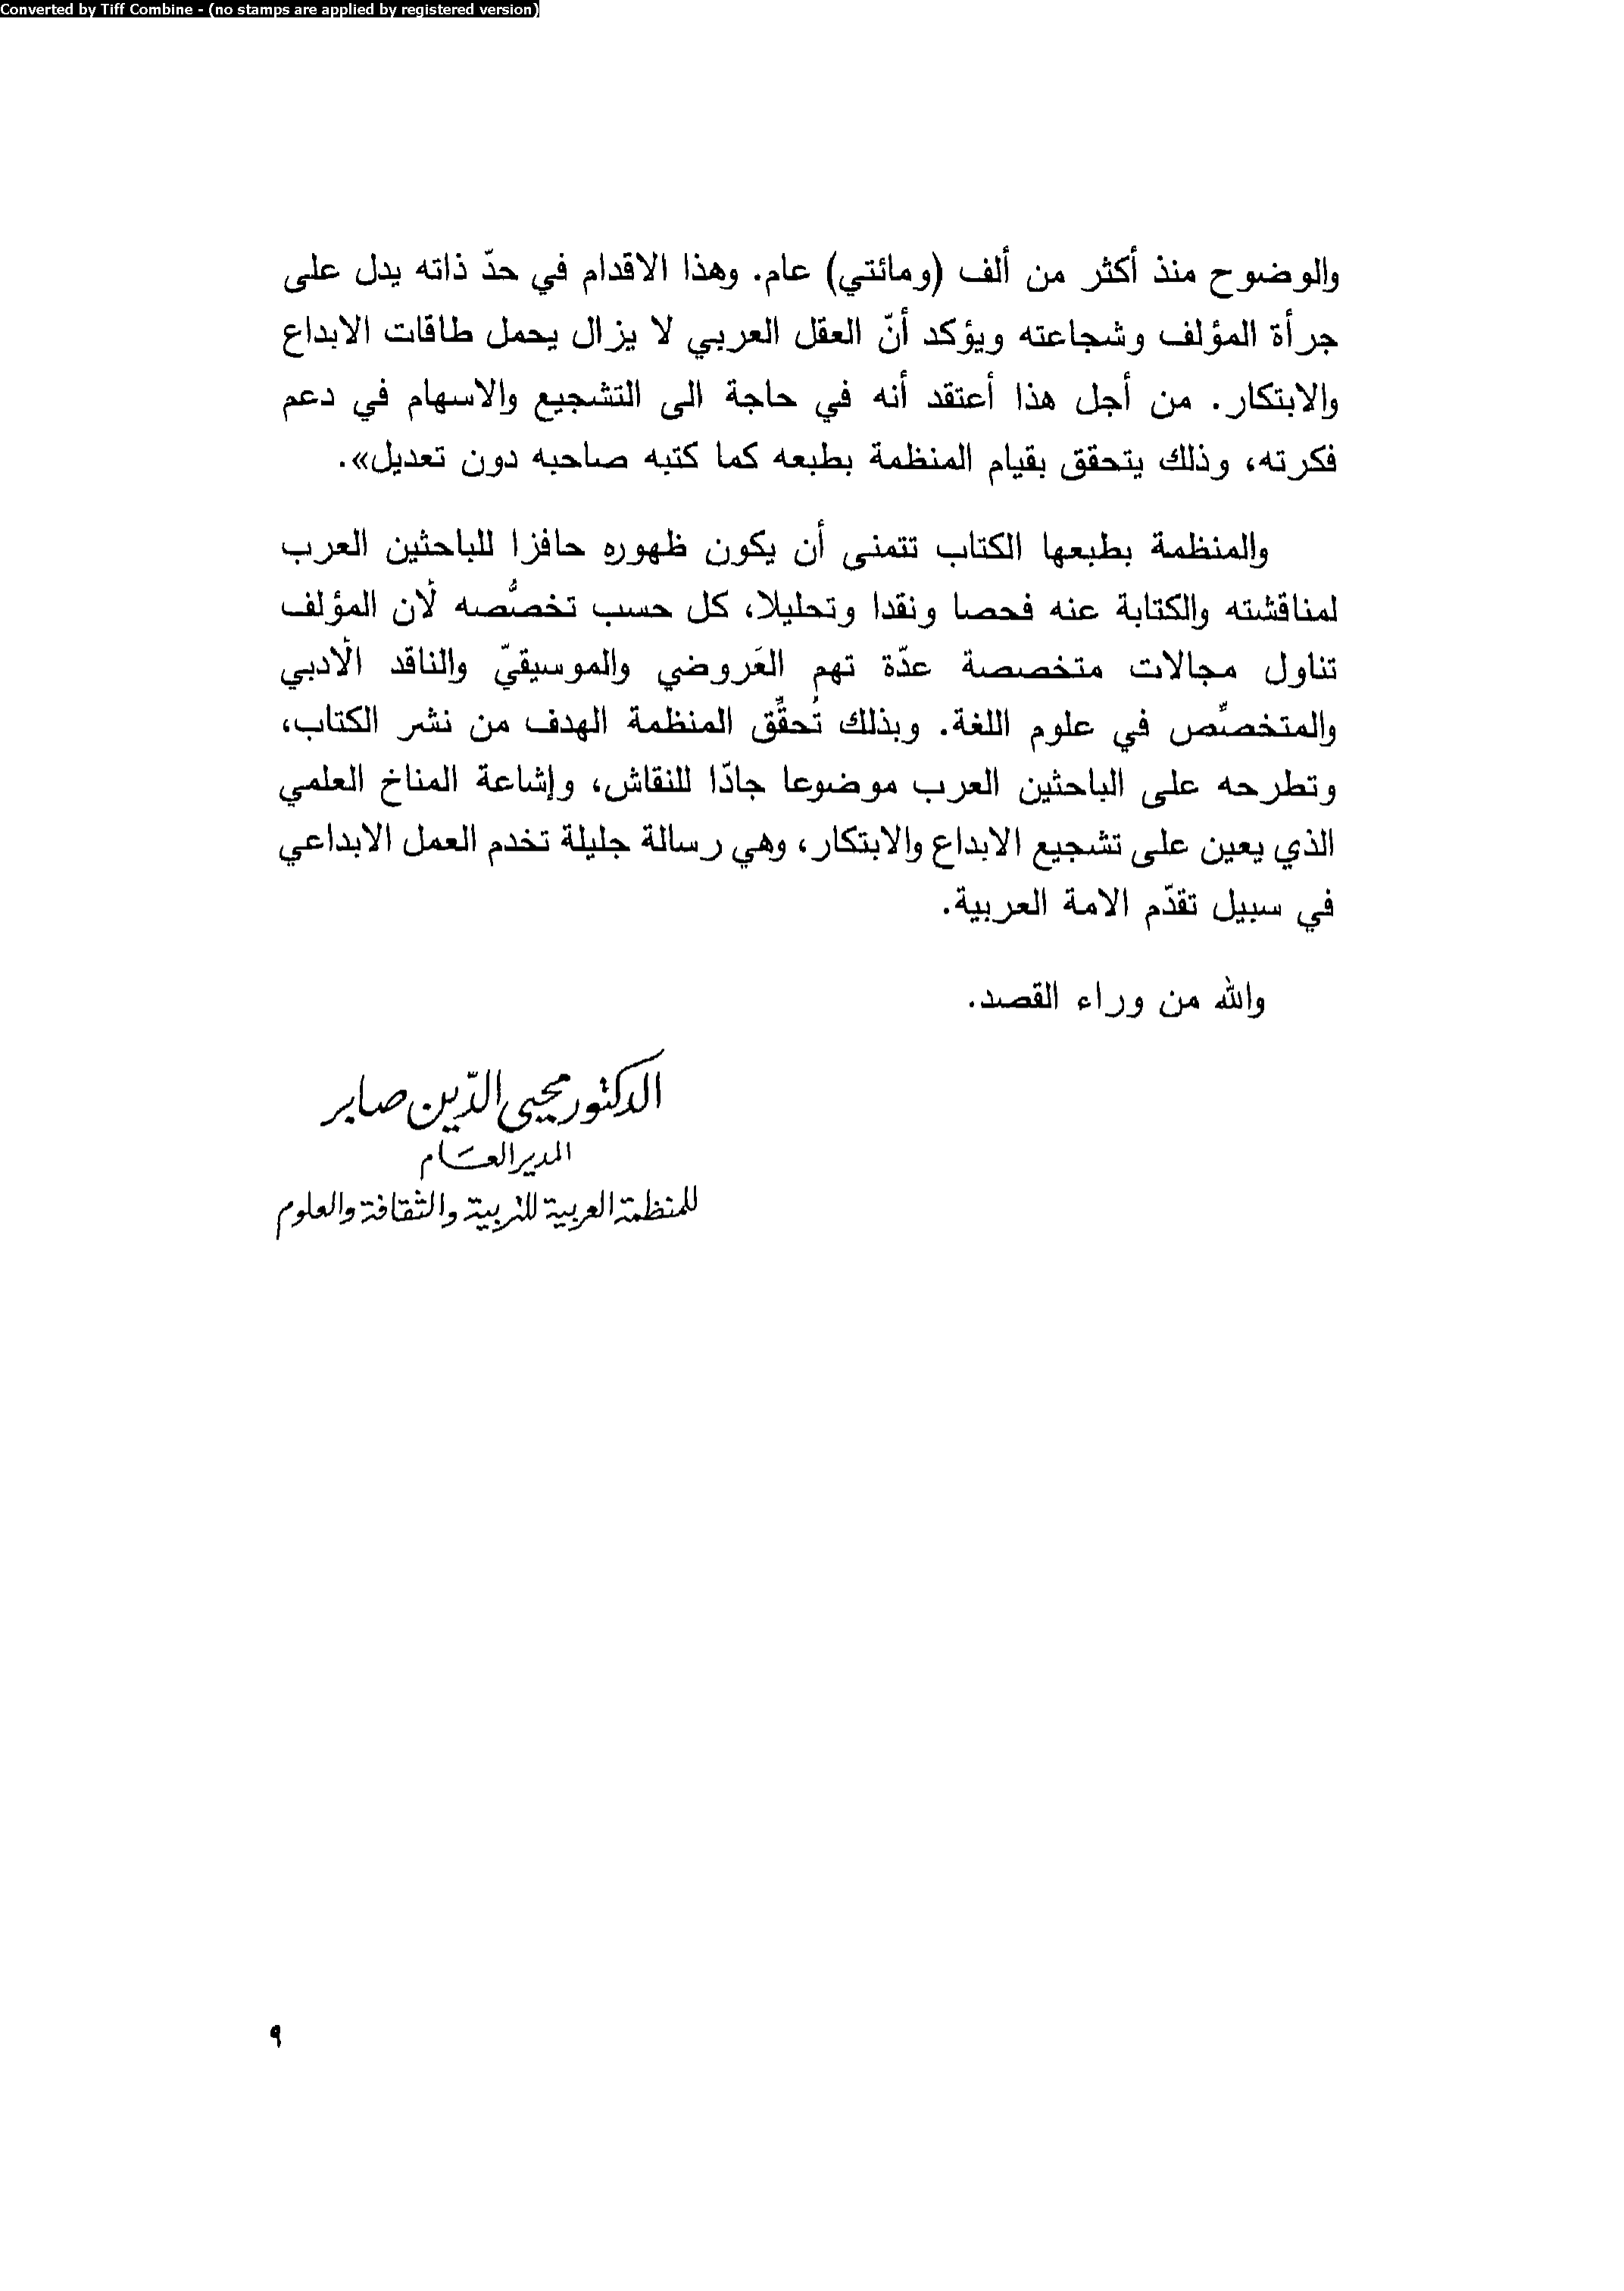 Converted by Tiff Combine - (no stamps are applied by registered version)
والوضوح منذ أكثر من ألف (ومائتي) عام. وهذا الاقدام في حدّ ذاته يدل على
جرأة المؤلف وشجاعته ويؤكد أنّ العقل العربي لا يزال يحمل طاقات الابداع
والابتكار. من أجل هذا أعتقد أنه في حاجة الى التشجيع والاسهام في دعم
فكرته، وذلك يتحقق بقيام المنظمة بطبعه كما كتبه صاحبه دون تعديل».
والمنظمة بطبعها الكتاب تتمنى أن يكون ظهوره حافزا للباحثين العرب
لمناقشته والكتابة عنه فحصا ونقدا وتحليلا، كل حسب تخصُّصه لأن المؤلف
تناول مجالات متخصصة عدّة تهم العَروضي والموسيقيّ والناقد الأدبي
والمتخصِّص في علوم اللغة. وبذلك تُحقِّق المنظمة الهدف من نشر الكتاب،
وتطرحه على الباحثين العرب موضوعا جادّا للنقاش، وإشاعة المناخ العلمي
الذي يعين على تشجيع الابداع والابتكار، وهي رسالة جليلة تخدم العمل الابداعي
في سبيل تقدّم الامة العربية.
والله من وراء القصد.
الدكتور محيي الدّين صابر
المدير العَام
للمنظمة العربية للتربية والثقافة والعلوم
٩